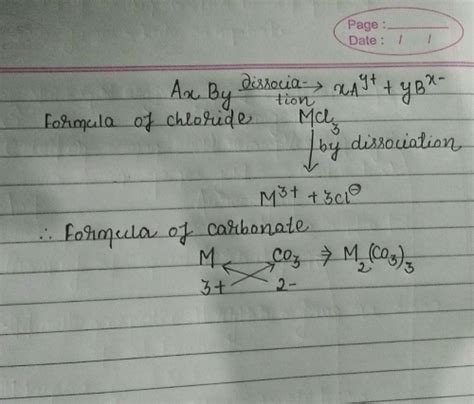 Page :
Date : / /
AxBy dissociation→ xA^y+ + yB^x-
Formula of chloride MCl3
by dissociation
M^3+ + 3Cl^⊖
∴ Formula of carbonate
M CO3 ⇒ M2(CO3)3
3+ 2-